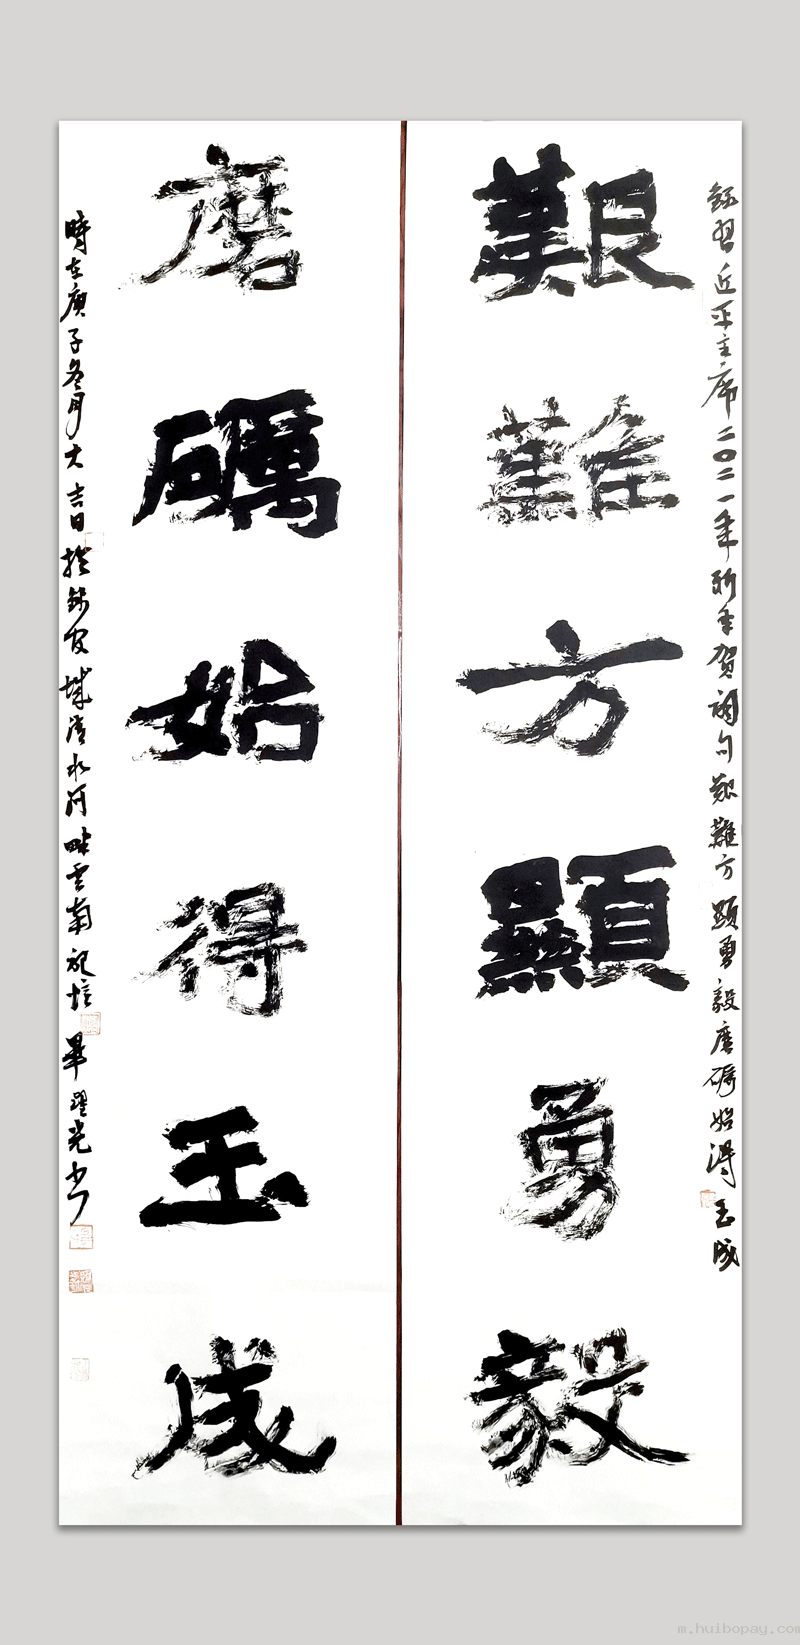 錄習近平主席二〇二一年新年贺词句艱難方顯勇毅磨礪始得玉成
艱難方顯勇毅
磨礪始得玉成
時在庚子冬月大吉日於錦官城清水河畔雲南畢躍光書
m.huibopay.com